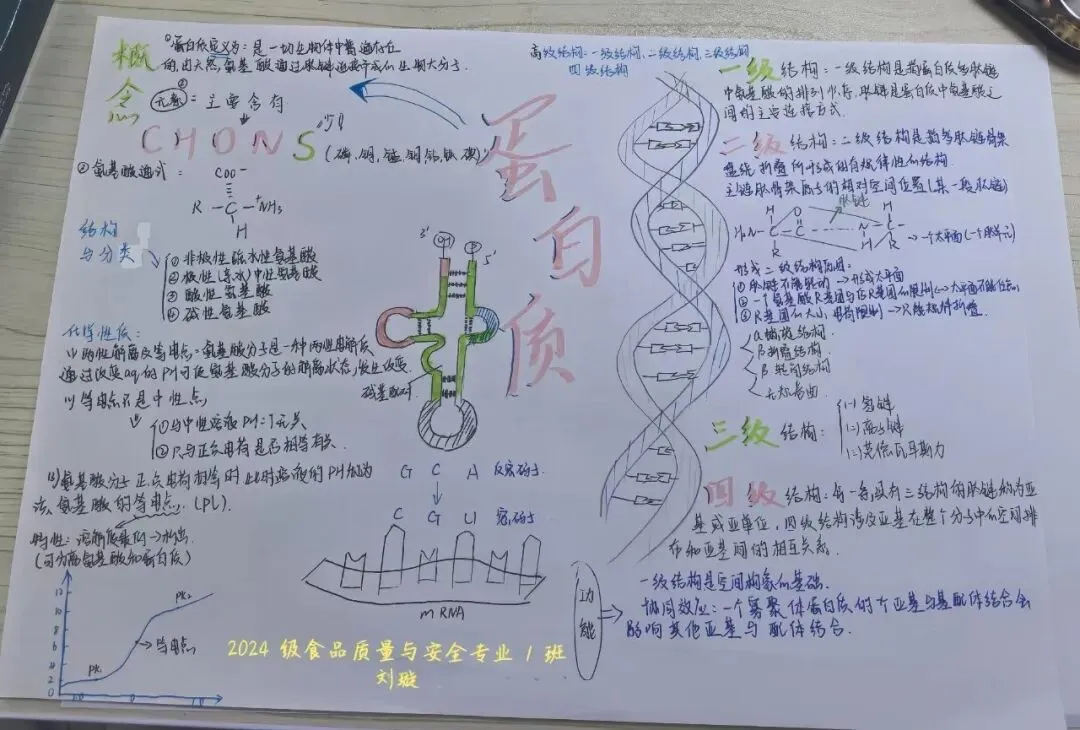 概念
①蛋白质定义为:是一切生物体中普遍存在
的,由天然氨基酸通过肽键连接而成的生物大分子.
②
元素:主要含有
CHONS
(磷、铜、锰、铜、钴、钛、碘)
②氨基酸通式:
COO⁻
R — C — ⁺NH₃
H
结构
与分类
① 非极性疏水性氨基酸
② 极性(亲水)中性氨基酸
③ 酸性氨基酸
④ 碱性氨基酸
化学性质:
(1)两性解离及等电点:氨基酸分子是一种两性电解质
通过改变aq的PH可使氨基酸分子的解离状态发生改变.
(1)等电点不是中性点
①与中性溶液PH=7无关
②只与正负电荷是否相等有关.
(3)氨基酸分子正负电荷相等时此时溶液的PH称为
该氨基酸的等电点.(PL).
特性:溶解度最低→析出
(可分离氨基酸和蛋白质)
12
10
8
6
4
2
0
PK₂
等电点
PK₁
蛋白质
3'
OH
P
5'
碱基配对
G C A 反密码子
C G U 密码子
mRNA
2024 级食品质量与安全专业 1 班
刘璇
高级结构:一级结构,二级结构,三级结构
四级结构
一级结构:一级结构是指蛋白质多肽链
中氨基酸的排列顺序,肽键是蛋白质中氨基酸之
间的主要连接方式.
二级结构:二级结构是指多肽链骨架
盘绕折叠所形成的有规律性的结构.
主链肽骨架原子的相对空间位置(某一段肽链)
肽键
H O H
H₂N — C — C N — C —
R H R
→一个太平面(一个肽单元)
形成二级结构原因:
①肽键不能转动→形成太平面
α螺旋结构
β折叠结构
β转角结构
无规卷曲
三级结构:
(一)氢键
(二)离子键
(三)范德瓦耳斯力
四级结构:每一条没有三结构的肽链称为亚
基或亚单位,四级结构涉及亚基在整个分子中的空间排
布和亚基间的相互关系.
功能
一级结构是空间构象的基础.
协同效应:一个寡聚体蛋白质的一个亚基与其配体结合会
影响其他亚基与配体结合.